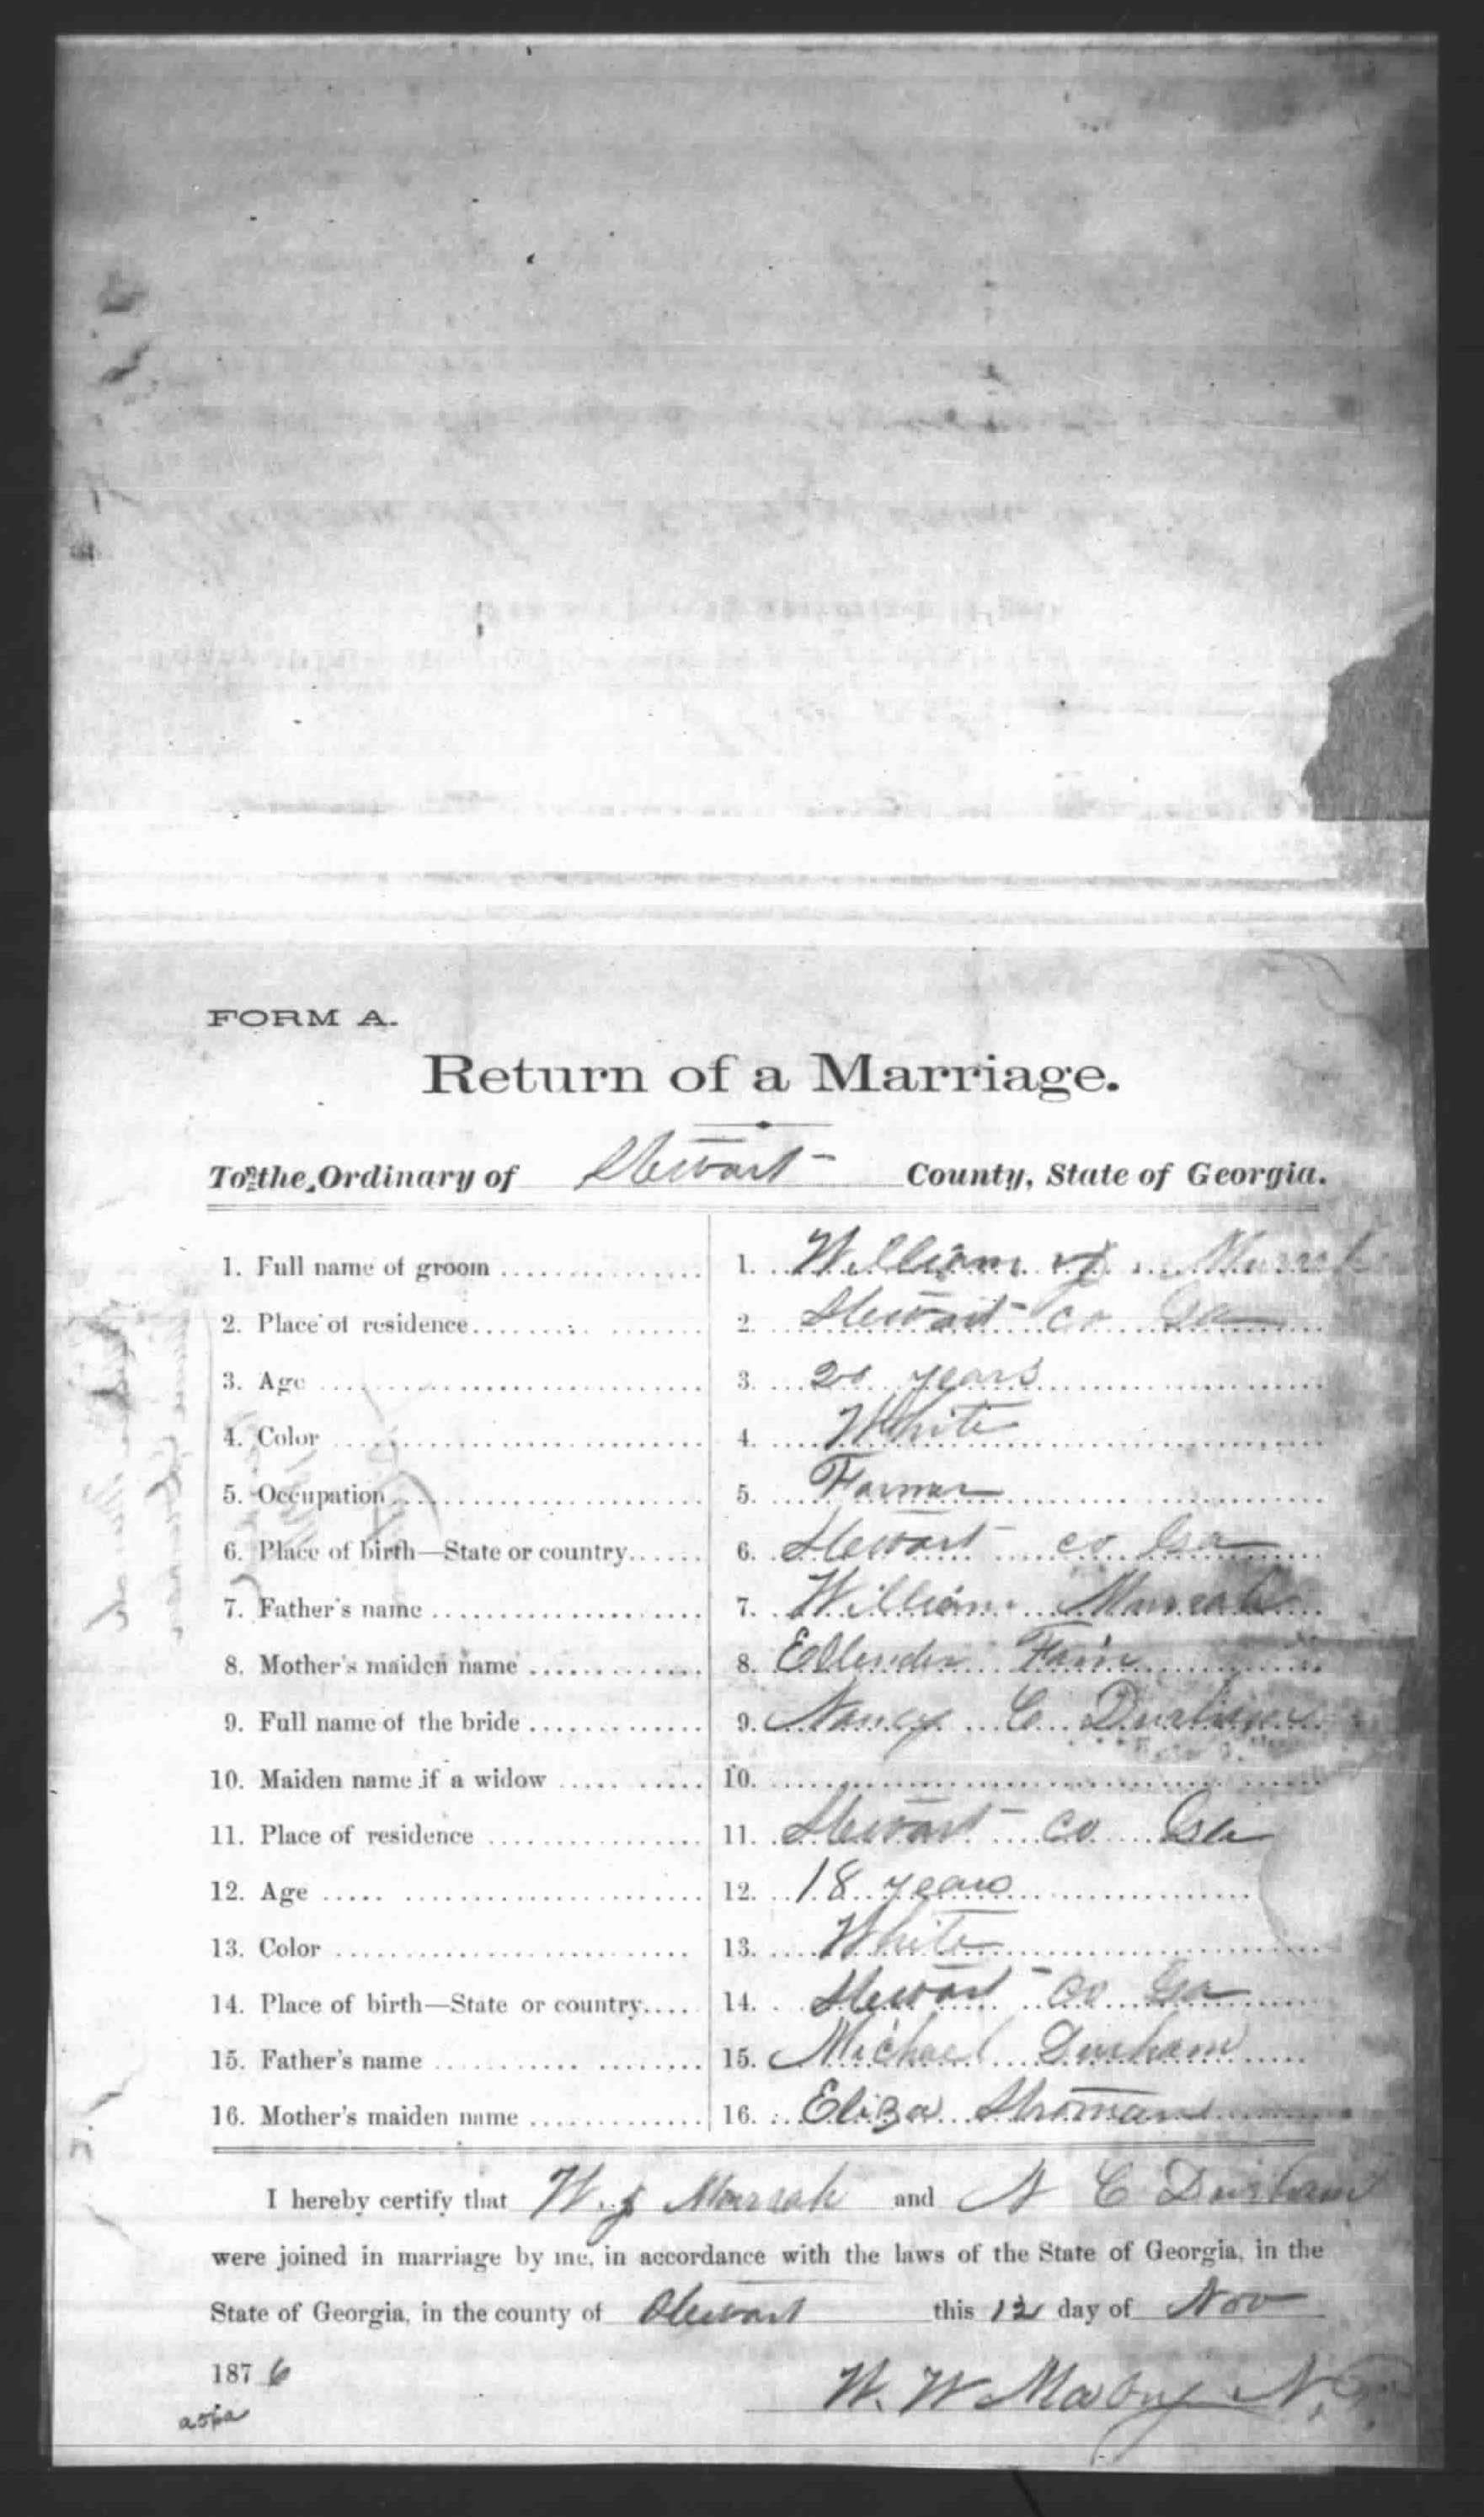 FORM A.
Return of a Marriage.
To the Ordinary of Stewart County, State of Georgia.
1. Full name of groom 1. William J. Murrah
2. Place of residence 2. Stewart Co Ga
3. Age 3. 20 years
4. Color 4. White
5. Occupation 5. Farmer
6. Place of birth—State or country 6. Stewart co Ga
7. Father's name 7. William Murrah
8. Mother's maiden name 8. Ellender Fain
9. Full name of the bride 9. Nancy C Durham
10. Maiden name if a widow 10.
11. Place of residence 11. Stewart co Ga
12. Age 12. 18 years
13. Color 13. White
14. Place of birth—State or country 14. Stewart Co Ga
15. Father's name 15. Michael Durham
16. Mother's maiden name 16. Eliza Stroman
I hereby certify that W. J Murrah and N C Durham
were joined in marriage by me, in accordance with the laws of the State of Georgia, in the
State of Georgia, in the county of Stewart this 12 day of Nov
1876
W. W Mabry N.